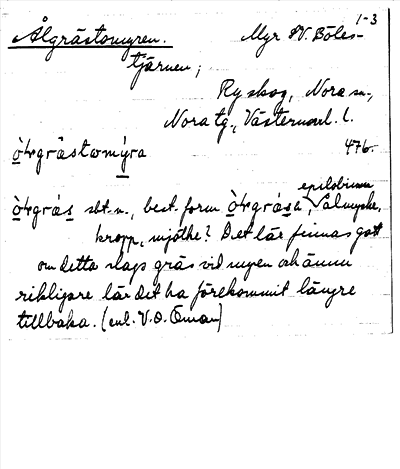 1-3
Ålgrästomyren. Myr SV. Böles-
tjärnen;
Ryskog, Nora sn.,
Nora tg., Västmanl. l.
476.
grästomýra
gräs sbt. n., best. form gräsa, epilobium
kropp, mjölke? Det lär finnas gott
om detta slags gräs vid myren och ännu
rikligare lär det ha förekommit längre
tillbaka. (enl. V. O. Öman)